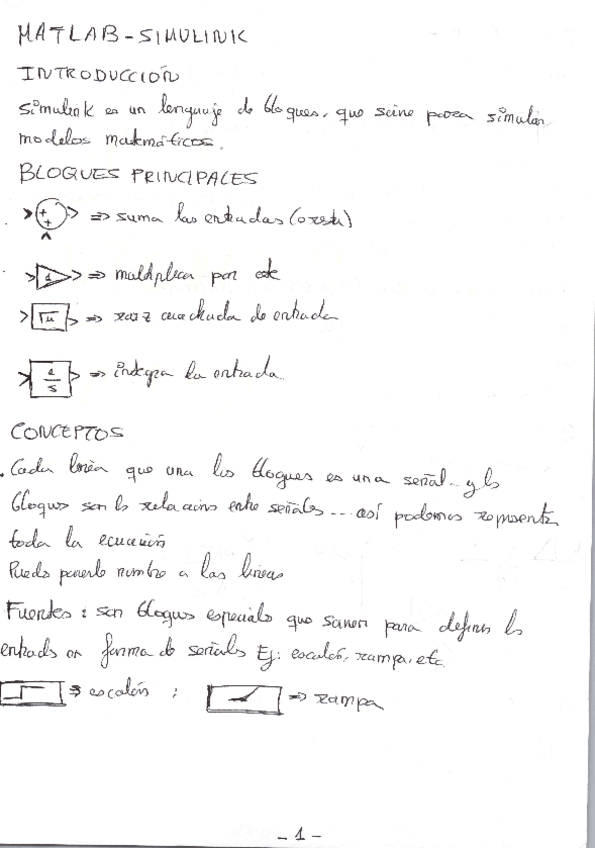 MATLAB-SIMULINK
INTRODUCCIÓN
Simulink es un lenguaje de bloques, que sirve para simular
modelos matemáticos.
BLOQUES PRINCIPALES
+ + => suma las entradas (o resta)
1 => multiplica por cte
√u => raiz cuadrada de entrada
1/s => integra la entrada
CONCEPTOS
. Cada linea que una los bloques es una señal... y los
bloques son las relaciones entre señales... así podemos representar
toda la ecuación
Puedo ponerle nombre a las lineas
Fuentes: son bloques especiales que sirven para definir las
entradas en forma de señales Ej: escalón, rampa, etc.
=> escalón ; => rampa
- 1 -